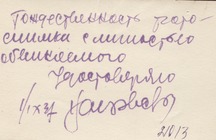 Тождественность фото-
снимка с личностью
обвиняемого
Удостоверяю
1/IX 37